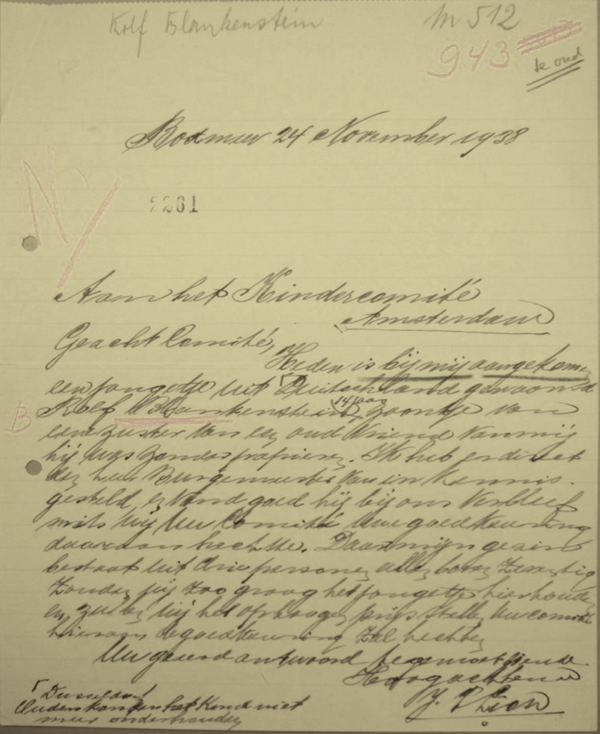 Rolf Blankenstein
M 512
943
te oud
Boxmeer 24 November 1938
2261
Aan het Kindercomité
Amsterdam
Geacht Comité,
Heden is bij mij aangekomen
een jongetje uit Duitschland genaamd
B
14 jaar
Rolf Blankenstein, zoontje van
een zuster van een oud vriend van mij
hij was zonder papieren. Ik heb er direct
den heer Burgemeester van in kennis
gesteld, en vond goed hij bij ons verbleef
mits bij Uw Comité Uwe goedkeuring
daaraan hechtte. Daar mijn gezin
bestaat uit drie personen allen boven twintig
zouden wij zoo graag het jongetje hier houden
en zouden wij het op hoogen prijs stellen Uw comité
hieraan de goedkeuring zal hechten
Uw geëerd antwoord tegemoetziende
Hoogachtend
J.
Dusseldorf
Ouders konden het kind niet
meer onderhouden